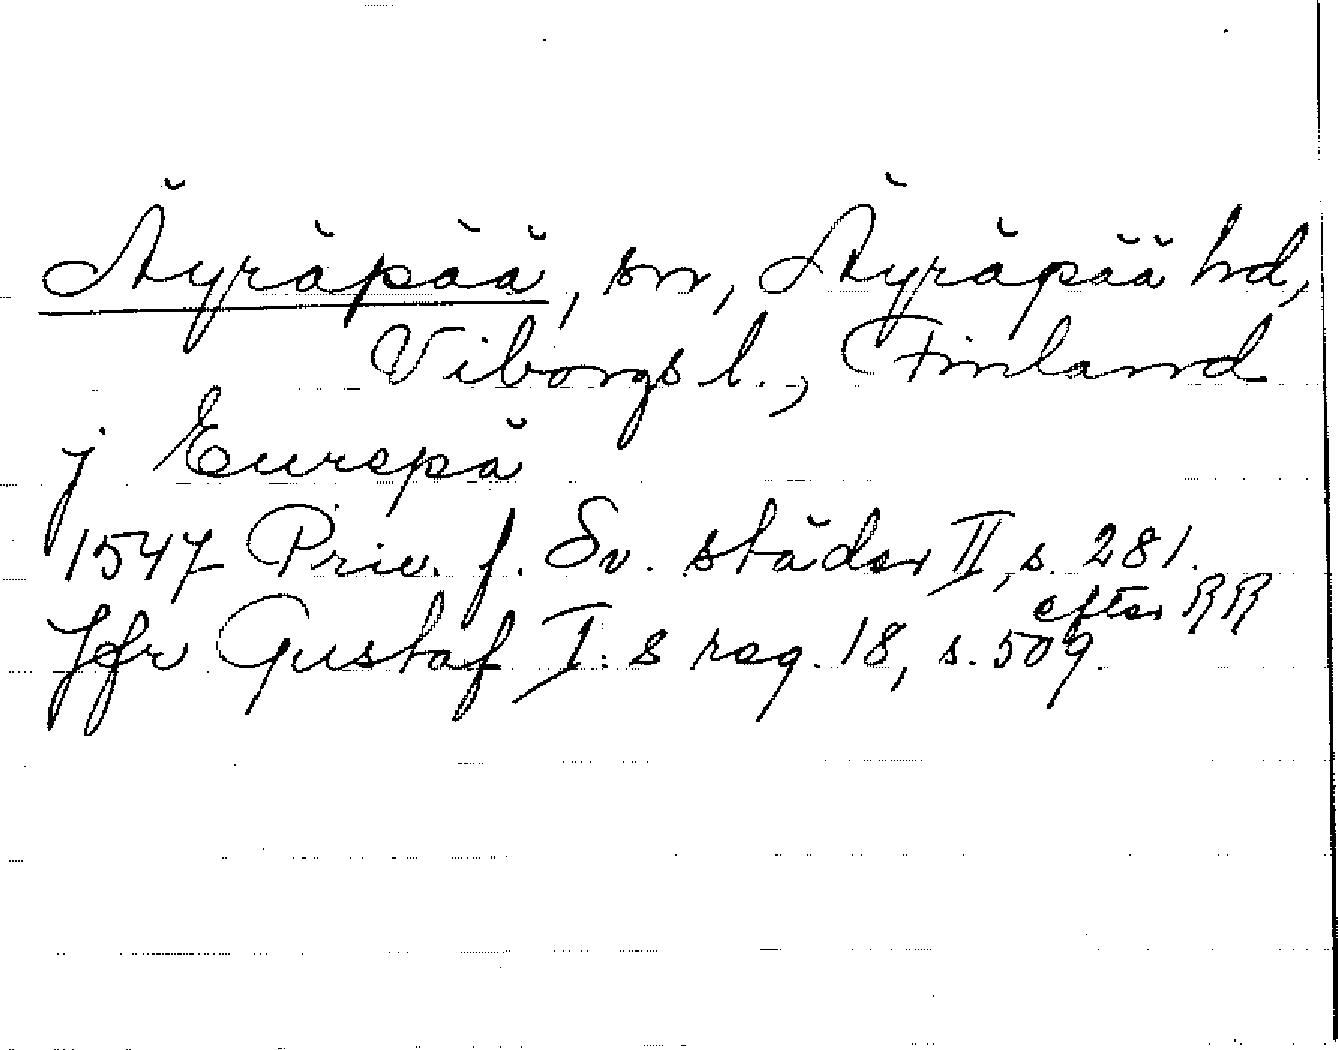 Äyräpää, sn, Äyräpää hd,
Viborgs l., Finland
j Eurepä
1547 Priv. f. Sv. städer II, s. 281.
efter RR
Jfr Gustaf I:s reg. 18, s. 509.